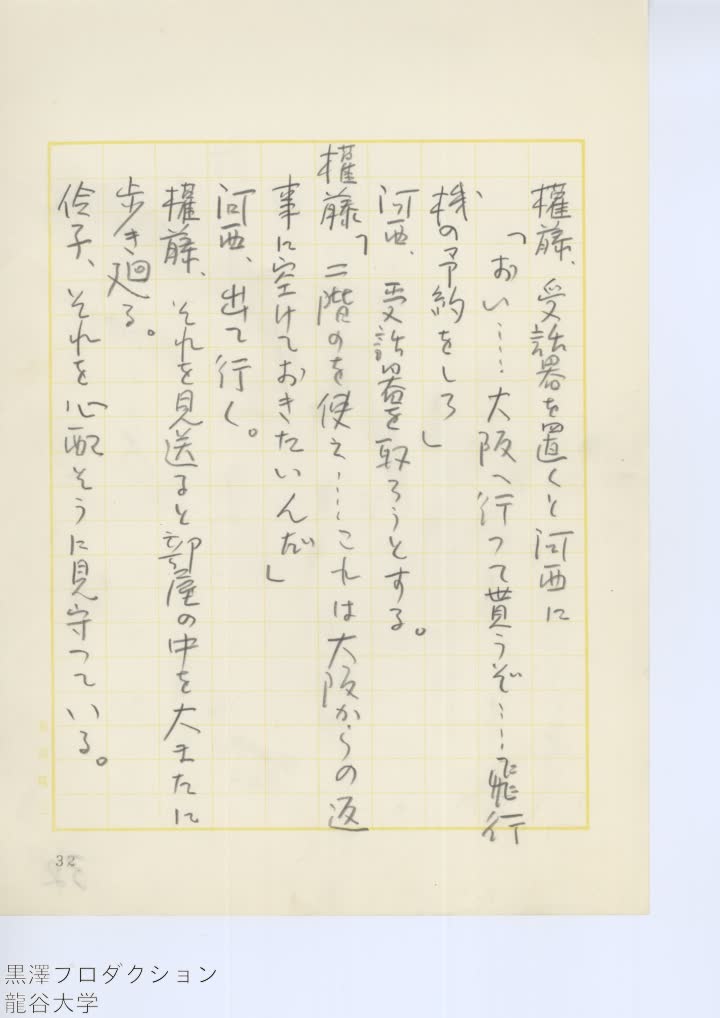 權藤、受話器を置くと河西に
「おい……大阪へ行つて貰うぞ……飛行
機の予約をしろ」
河西、受話器を取ろうとする。
權藤「二階のを使え……これは大阪からの返
事に空けておきたいんだ」
河西、出て行く。
權藤、それを見送ると部屋の中を大またに
歩き廻る。
伶子、それを心配そうに見守つている。
32
黒澤プロダクション
龍谷大学